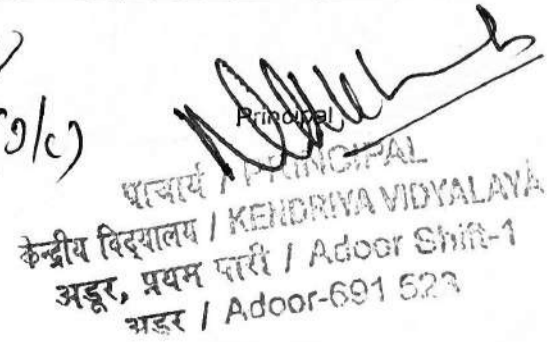 Principal
प्राचार्य / PRINCIPAL
केन्द्रीय विद्यालय / KENDRIYA VIDYALAYA
अडूर, प्रथम पारी / Adoor Shift-1
अडूर / Adoor-691 523